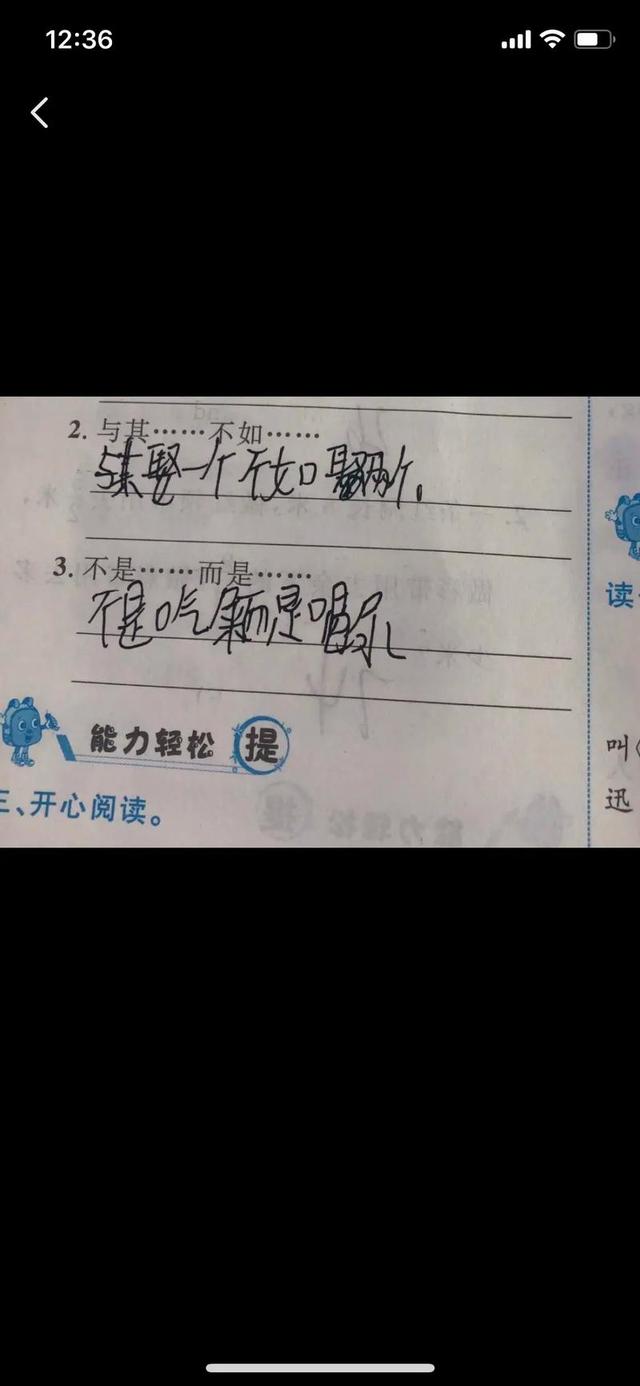 12:36
2. 与其……不如……
与其娶一个不如娶两个。
3. 不是……而是……
不是吃 而是喝
能力轻松 提
三、开心阅读。
读
叫
迅